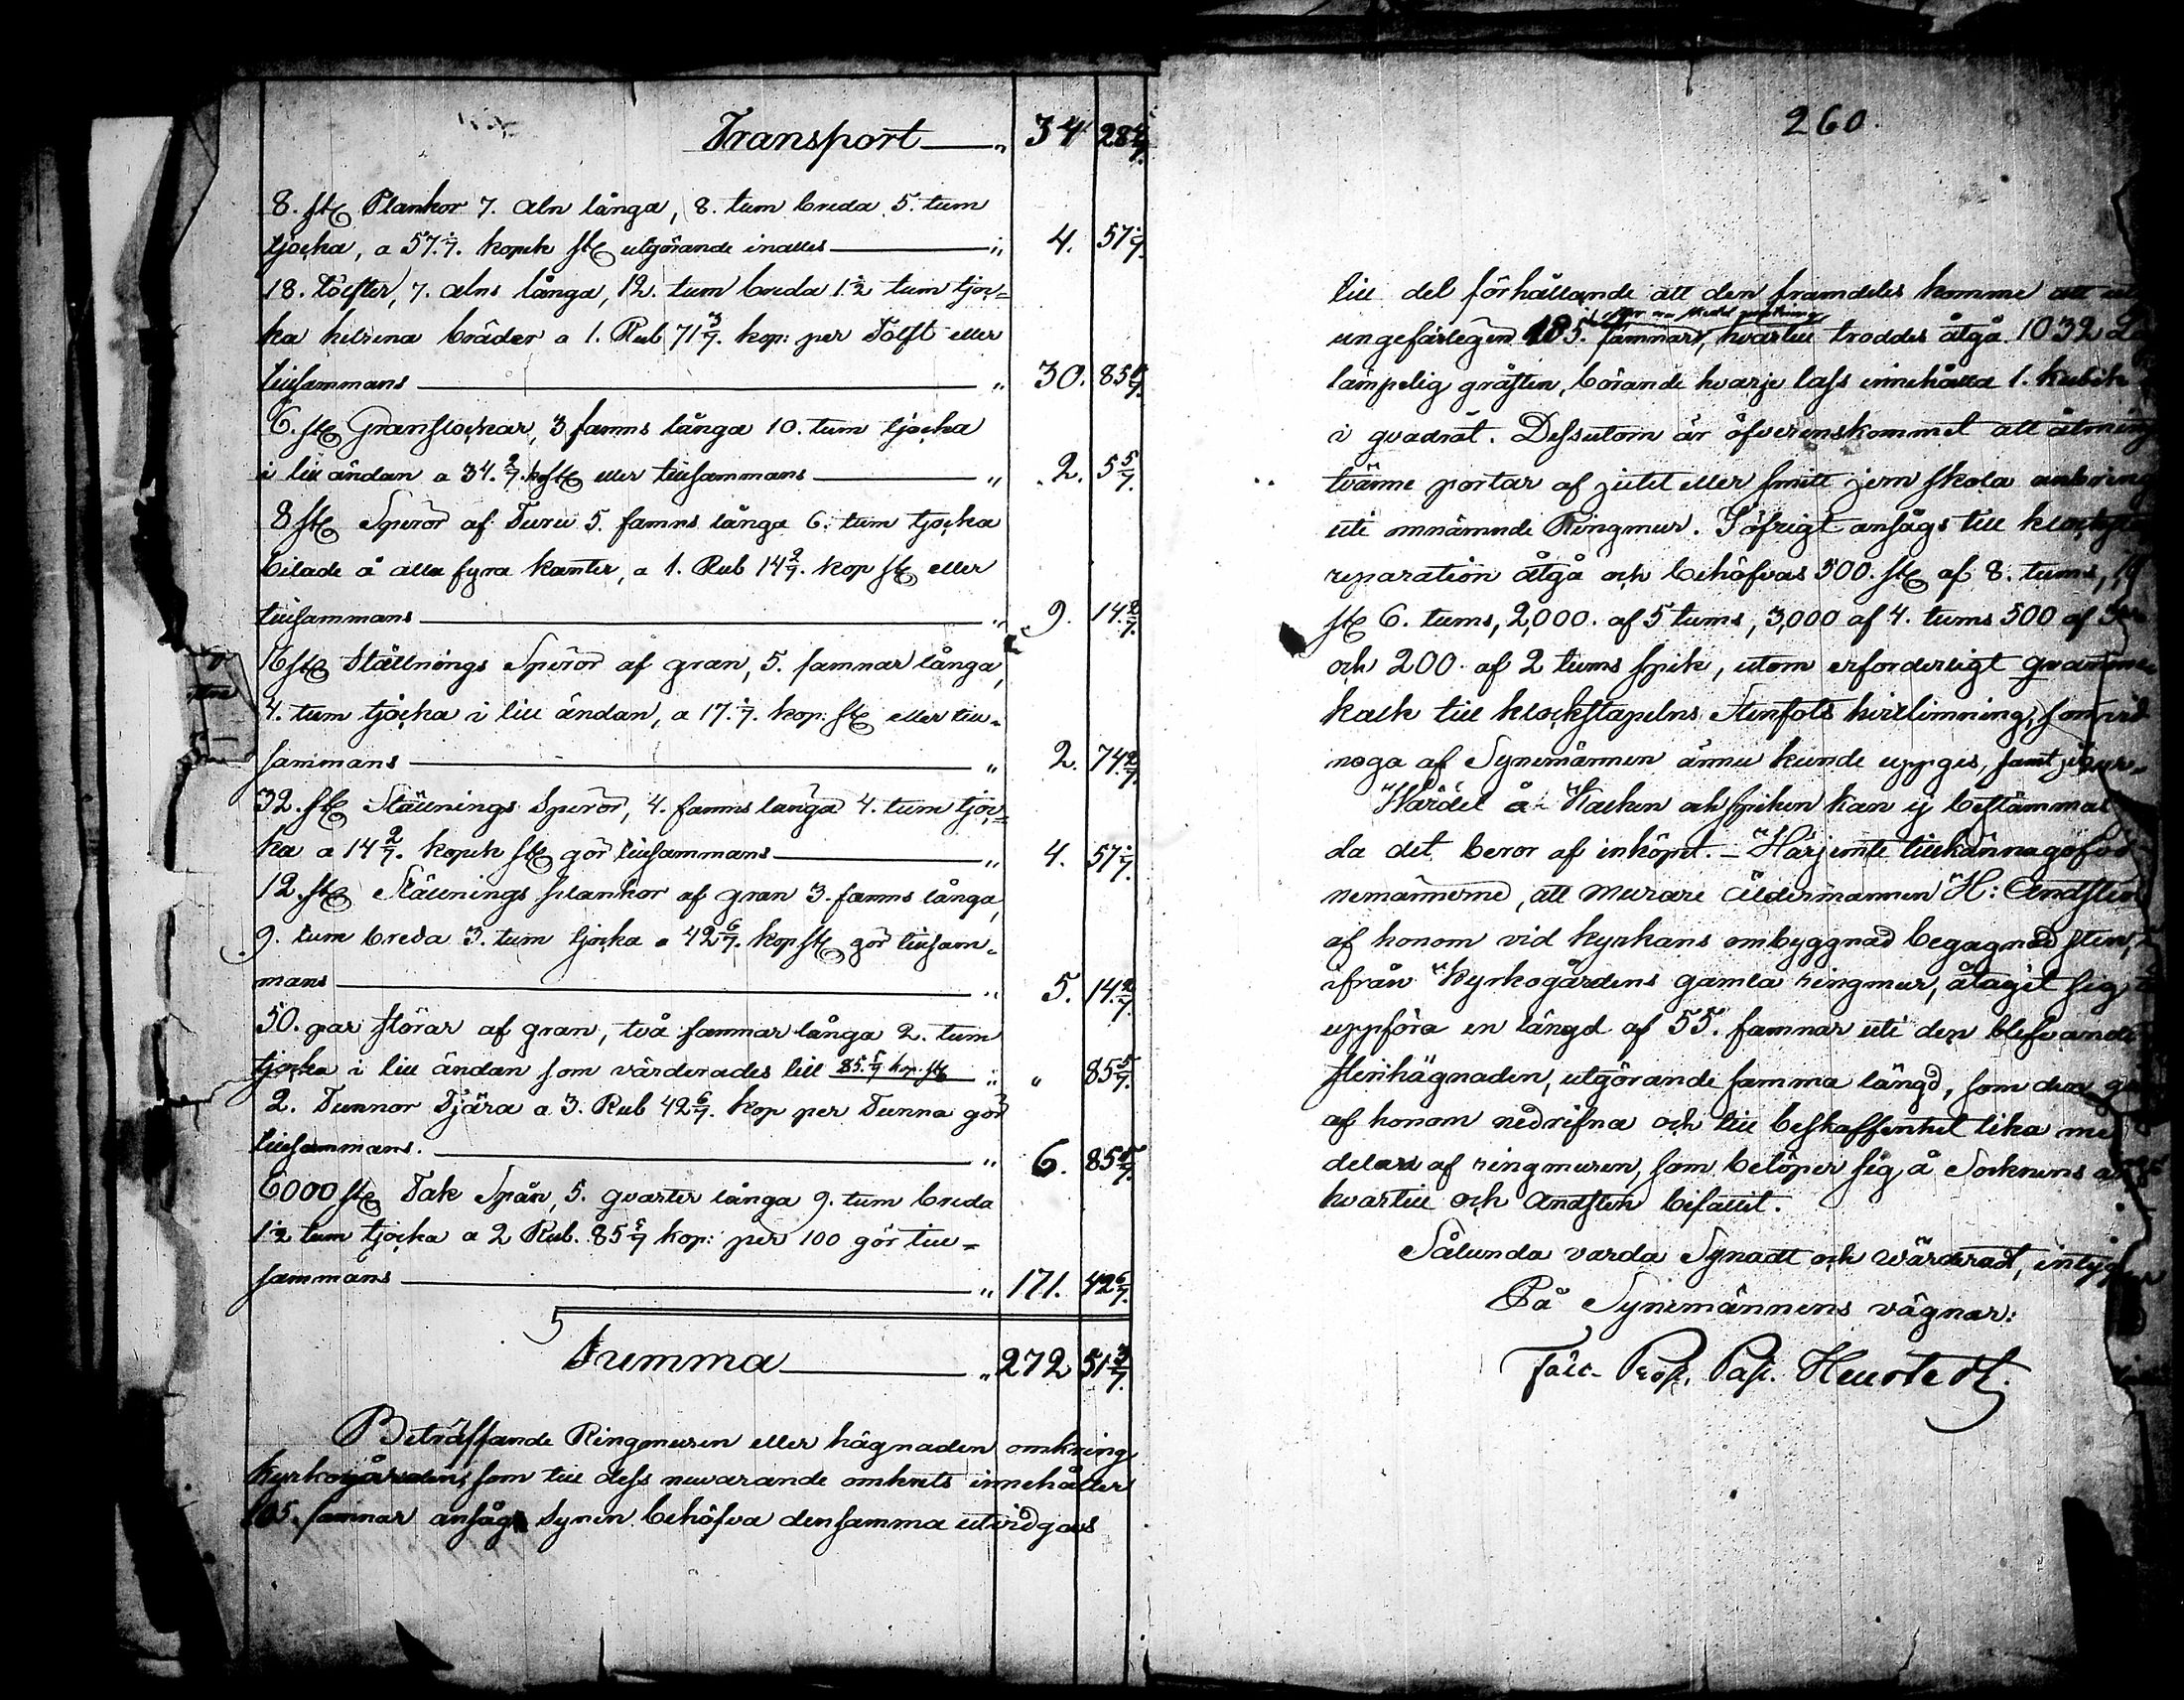 Transport „ 34 28 4/7.
8. st Plankor 7. Aln långa, 8. tum breda 5. tum
tjocka, a 57. 1/7. kopek st utgörande inalles „ 4. 57 1/7.
18. tolfter, 7. alns långa, 12. tum breda 1 1/2 tum tjoc=
ka helrena bräder a 1. Rub 71 3/7. kop: per Tolft eller
tillsammans „ 30. 85 5/7.
6. st Granstockar, 3 famns långa 10. tum tjocka
i lill ändan a 34. 2/7. kop st eller tillsammans „ 2. 5 5/7.
8 st Speror af Furu 5. famns långa 6. tum tjocka
bilade å alla fyra kanter, a 1. Rub 14 2/7. kop st eller
tillsammans „ 9. 14 2/7.
16 st Ställnings Speror af gran, 5. famnar långa,
4. tum tjocka i lill ändan, a 17. 1/7. kop: st eller till=
sammans „ 2. 74 2/7.
32. st Ställnings Speror, 4. famns långa 4. tum tjoc=
ka a 14 2/7. kopek st gör tillsammans „ 4. 57 1/7.
12. st Ställnings plankor af gran 3. famns långa,
9. tum breda 3. tum tjocka a 42 6/7. kop st gör tillsam=
mans „ 5. 14 2/7.
50. par störar af gran, två famnar långa 2. tum
tjocka i lill ändan som värderades till 85. 5/7 kop. st „ „ 85 5/7.
2. Tunnor Tjära a 3. Rub 42 6/7. kop per Tunna gör
tillsammans. „ 6. 85 5/7.
6000 st Tak Spån, 5. qvarter långa 9. tum breda
1 1/2 tum tjocka a 2 Rub. 85 5/7 kop: per 100 gör till=
sammans „ 171. 42 6/7.
Summa „ 272 51 3/7.
Beträffande Ringmuren eller hägnaden omkring
Kyrkogården, som till dess nuvarande omkrets innehåller
165. famnar ansågs Synen behöfva densamma utvidgas
260.
till det förhållande att den framdeles komme att
ungefärligen 185. famnar, hvartill troddes åtgå 1032
lämpelig gråsten, börande hvarje lass innehålla 1. kubik
i qvadrat. Dessutom är öfverenskommet att åtming
tvänne portar af jutet eller smitt jern skola anbring
uti omnämnde Ringmur. I öfrigt ansågs till
reparation åtgå och behöfvas 500. st af 8. tums,
st 6. tums, 2,000. af 5 tums, 3,000 af 4. tums 500 af
och 200. af 2 tums spik, utom erforderligt
kalk till klockstapelns Stenfots hvitlimning, som
noga af Synemännen ännu kunde uppges, samt
Wärdet å Kalken och spiken kan ej bestämmas
da det beror af inköpet. – Härjemte tillkännagåfvo
nemännerne, att Murare Åldermannen H: Andsten
af honom vid kyrkans ombyggnad begagnad sten,
ifrån Kyrkogårdens gamla ringmur, åtagit sig
uppföra en längd af 55. famnar uti den blefvande
stenhägnaden, utgörande samma längd, som den
af honom nedrifna och till beskaffenhet lika
delar af ringmuren, som belöper sig å Socknens
hvartill och Andsten bifallit.
Sålunda varda Synadt och Wärderadt,
På Synemännens vägnar: